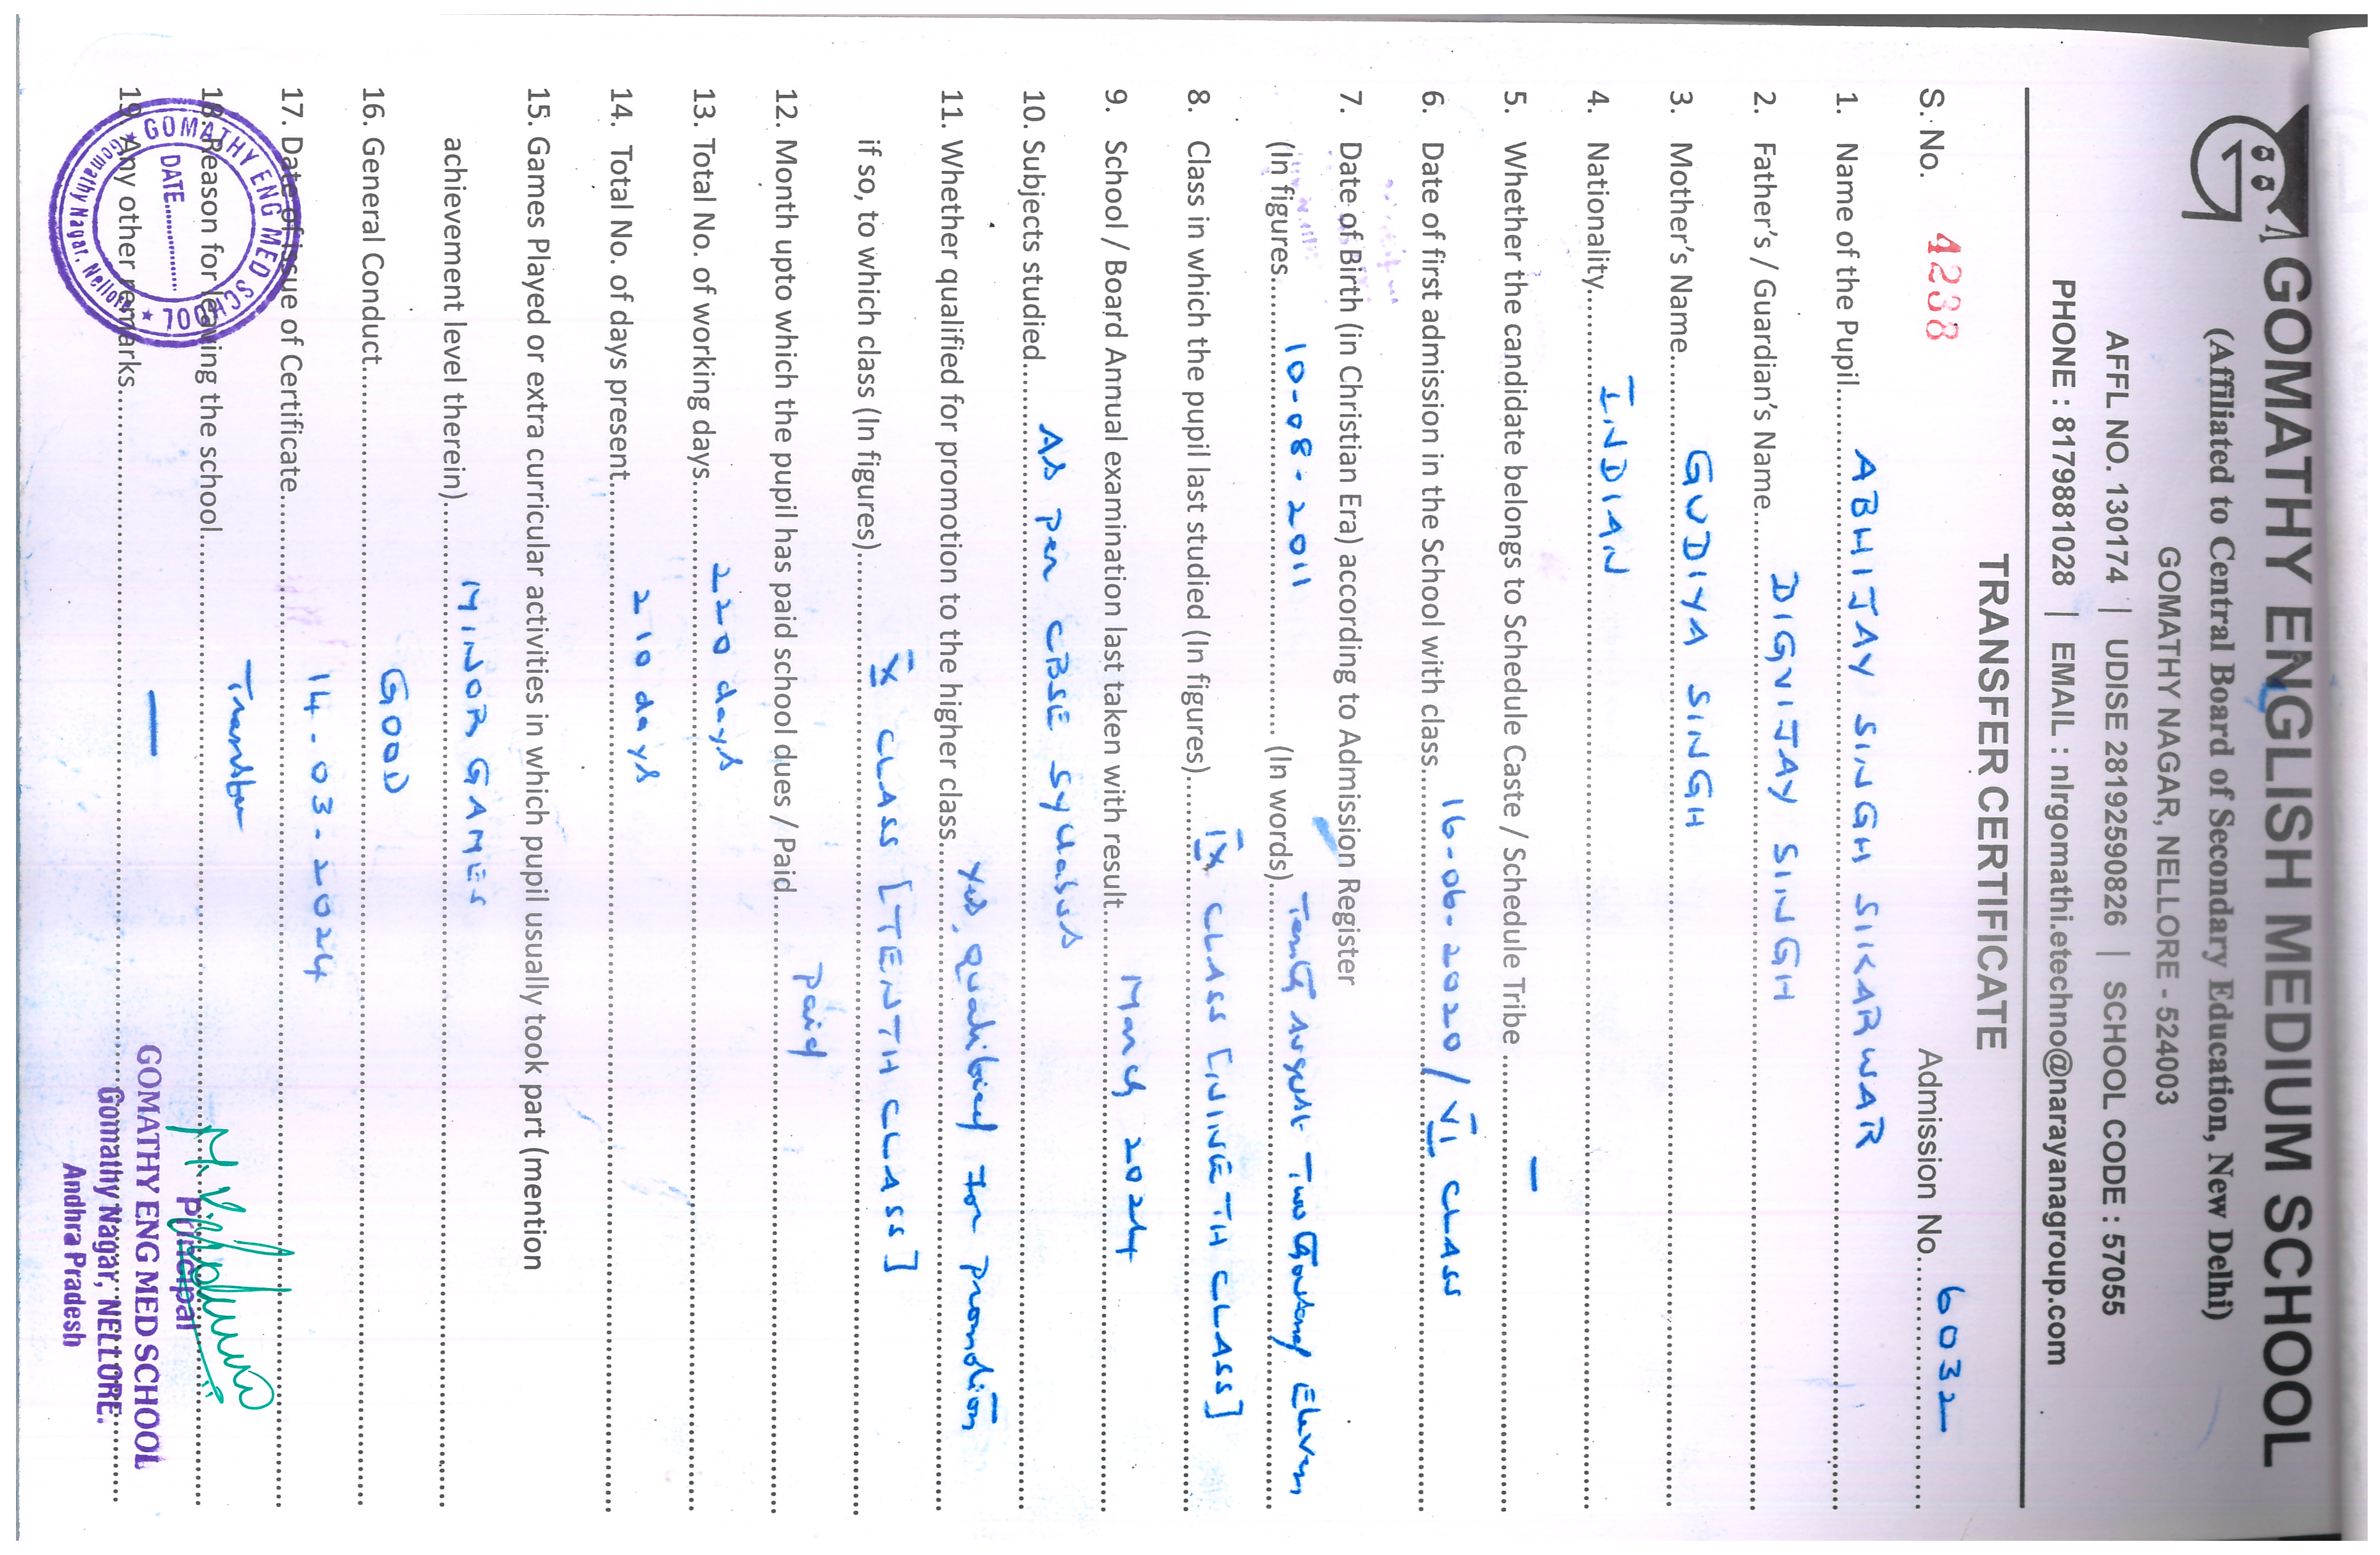 GOMATHY ENGLISH MEDIUM SCHOOL
(Affiliated to Central Board of Secondary Education, New Delhi)
GOMATHY NAGAR, NELLORE - 524003
AFFL NO. 130174 | UDISE 28192590826 | SCHOOL CODE : 57055
PHONE : 8179881028 | EMAIL : nlrgomathi.etechno@narayanagroup.com
TRANSFER CERTIFICATE
S. No. 4238 Admission No. 6032
1. Name of the Pupil ABHIJAY SINGH SIKARWAR
2. Father's / Guardian's Name DIGVIJAY SINGH
3. Mother's Name GUDIYA SINGH
4. Nationality INDIAN
5. Whether the candidate belongs to Schedule Caste / Schedule Tribe —
6. Date of first admission in the School with class 16-06-2020 / VI CLASS
7. Date of Birth (in Christian Era) according to Admission Register
(In figures 10-08-2011 (In words) Tenth August Two Thousand Eleven
8. Class in which the pupil last studied (In figures) IX CLASS [NINETH CLASS]
9. School / Board Annual examination last taken with result March 2024
10. Subjects studied As per CBSE Syllabus
11. Whether qualified for promotion to the higher class Yes, Qualified for promotion
if so, to which class (In figures) X CLASS [TENTH CLASS]
12. Month upto which the pupil has paid school dues / Paid Paid
13. Total No. of working days 220 days
14. Total No. of days present 210 days
15. Games Played or extra curricular activities in which pupil usually took part (mention
achievement level therein) MINOR GAMES
16. General Conduct GOOD
17. Date of Issue of Certificate 14-03-2024
18. Reason for leaving the school Transfer
19. Any other remarks —
GOMATHY ENG MED SCHOOL
DATE
Gomathy Nagar, Nellore
Principal
GOMATHY ENG MED SCHOOL
Gomathy Nagar, NELLORE.
Andhra Pradesh